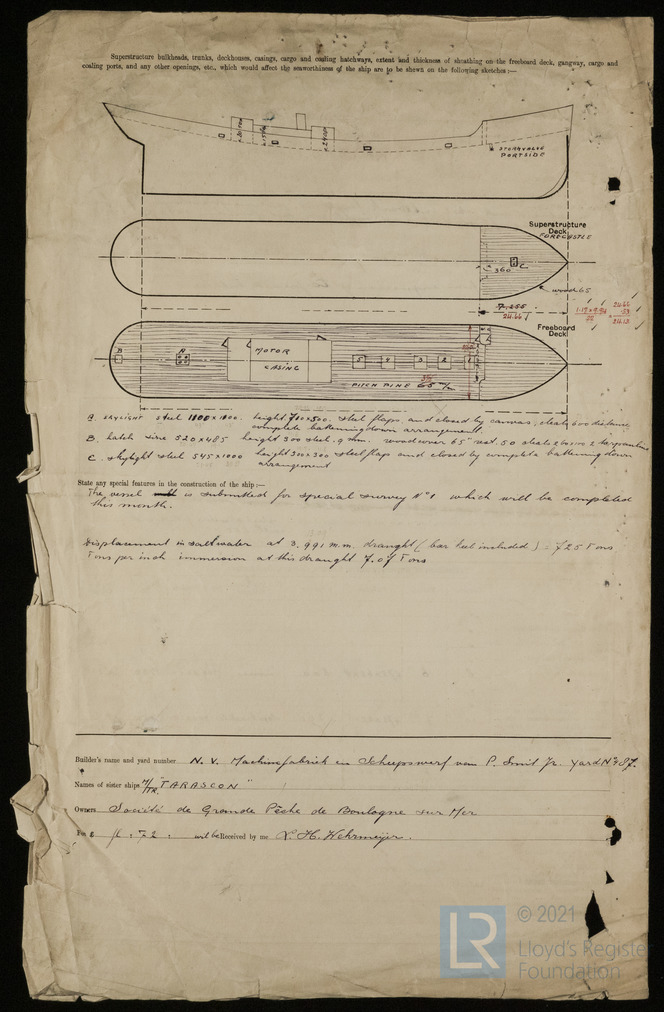 Superstructure bulkheads, trunks, deckhouses, casings, cargo and coaling hatchways, extent and thickness of sheathing on the freeboard deck, gangway, cargo and
coaling ports, and any other openings, etc., which would affect the seaworthiness of the ship are to be shewn on the following sketches :—
STORMVALVE
PORTSIDE
Superstructure
Deck
FORECASTLE
C
360
wood 65
7.255
24.66
Freeboard
Deck
B
A
MOTOR
CASING
5 4 3 2 1
PITCH PINE 65 m/m
A. skylight steel 1100 x 1000. height 700x500. steel flaps and closed by canvas, cleats 600 distance
complete battening down arrangement.
B. hatch size 520 x 485 height 300 steel. 9 mm. wood cover 65 rest 50 cleats 2 tarpaulins
C. skylight steel 545 x 1000 height 300 x 300 steel flaps and closed by complete battening down
arrangement
State any special features in the construction of the ship :—
The vessel is submitted for special survey No 1 which will be completed
this month.
Displacement in saltwater at 3.991 m.m. draught (bar keel included) = 725 Tons
Tons per inch immersion at this draught 7.07 Tons
Builder's name and yard number N. V. Machinefabriek en Scheepswerf van P. Smit Jr. yard No 487.
Names of sister ships M/Tr. "TARASCON"
Owners Société de Grande Pêche de Boulogne sur Mer
Fee £ fl : 72 : will be Received by me
© 2021
Lloyd's Register
Foundation
LR